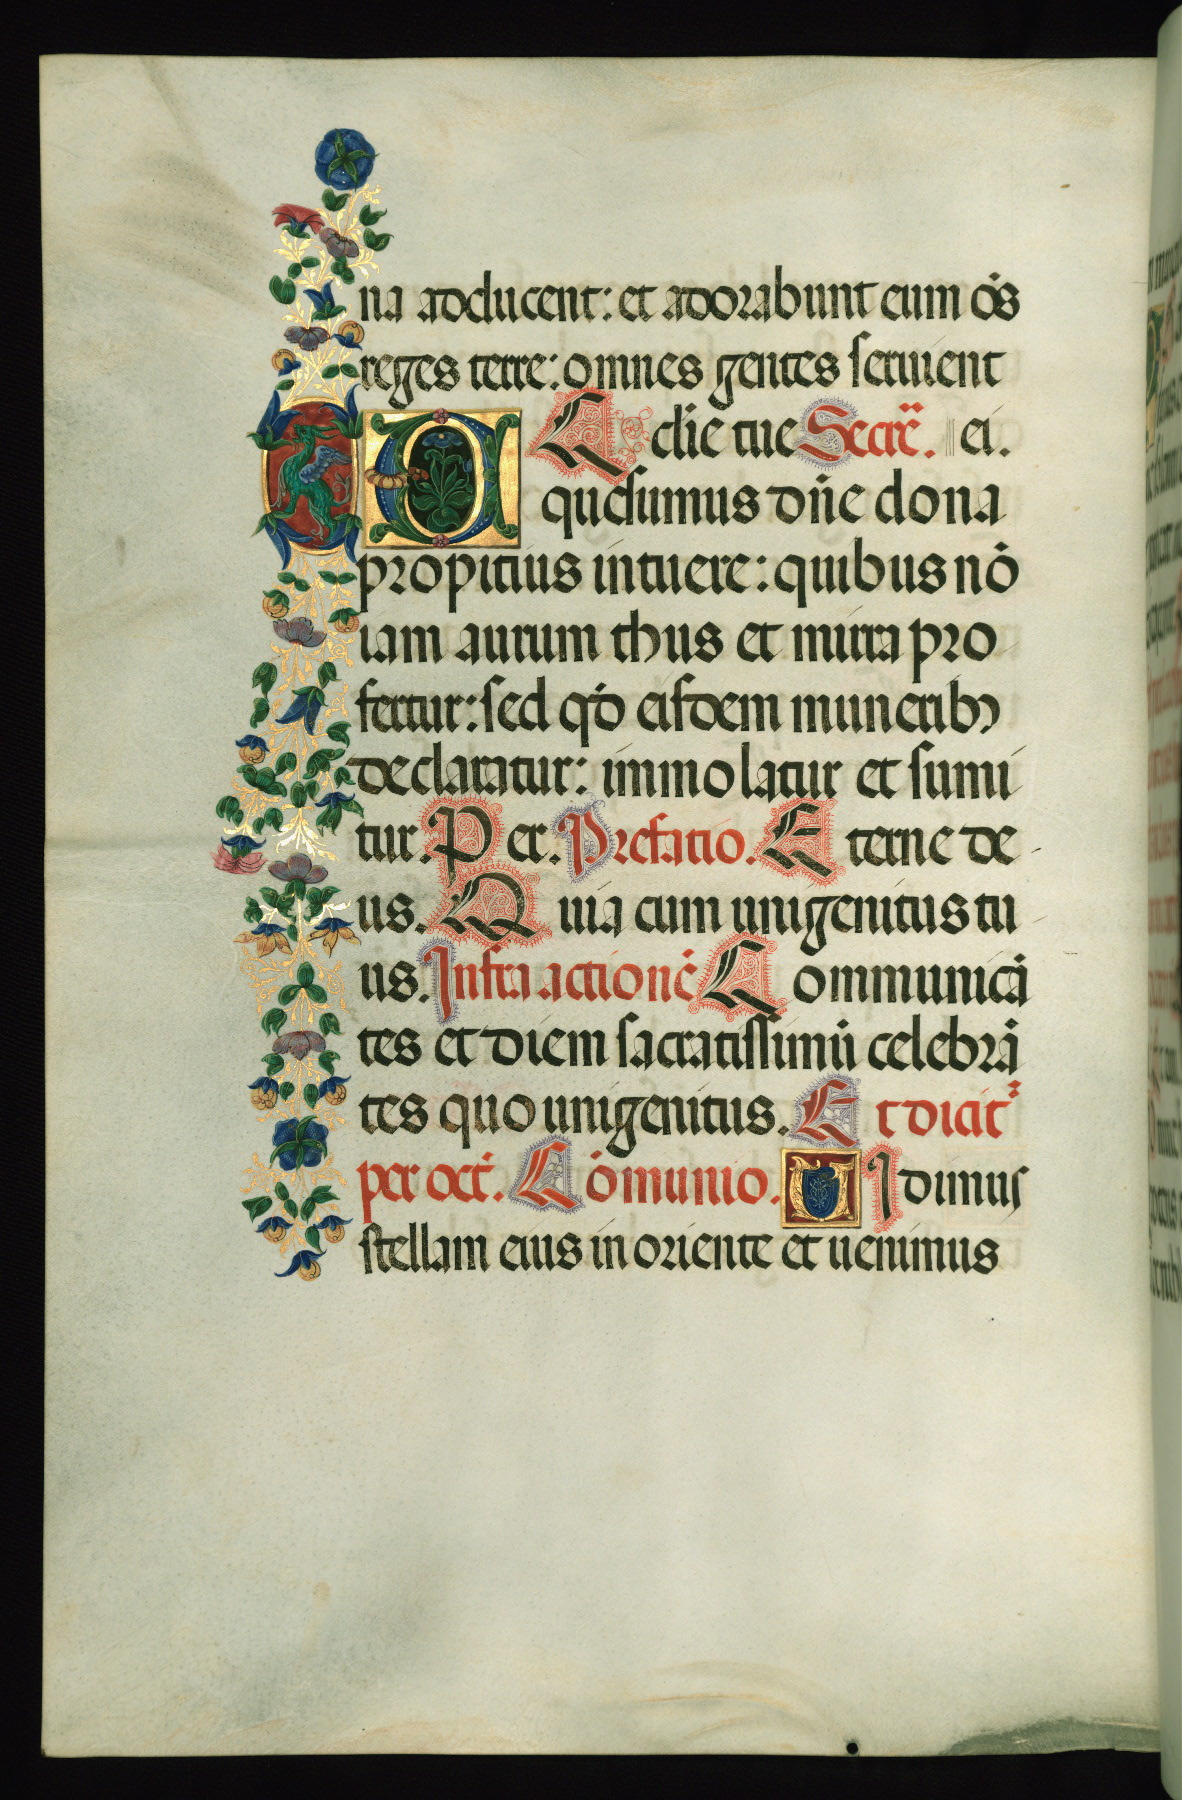 na adducent: et adorabunt eum ōs
reges terre: omnes gentes seruient
E cclīe tue Secrē. ei.
qudsumus dn̄e dona
propitius intuere: quibus nō
iam aurum thus et mirra pro
fertur: sed qđ eisdem munerib9
declaratur: immolatur et sumi
tur. Per. Prefatio. Eterne de
us. Quia cum unigenitus tu
us. Infra actionē Communicā
tes et diem sacratissimū celebrā
tes quo unigenitus. Et dicit᷑
per oct̄. Cōmunio. VIdimus
stellam eius in oriente et uenimus